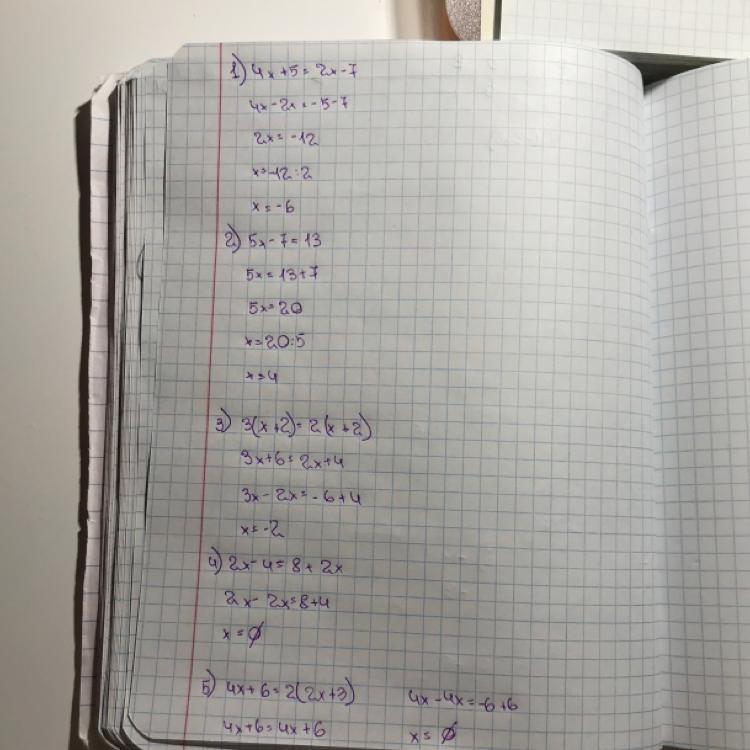 1) 4x+5=2x-7
4x-2x=-5-7
2x=-12
x=-12:2
x=-6
2) 5x-7=13
5x=13+7
5x=20
x=20:5
x=4
3) 3(x+2)=2(x+2)
3x+6=2x+4
3x-2x=-6+4
x=-2
4) 2x-4=8+2x
2x-2x=8+4
x=∅
5) 4x+6=2(2x+3)
4x+6=4x+6
4x-4x=-6+6
x=∅